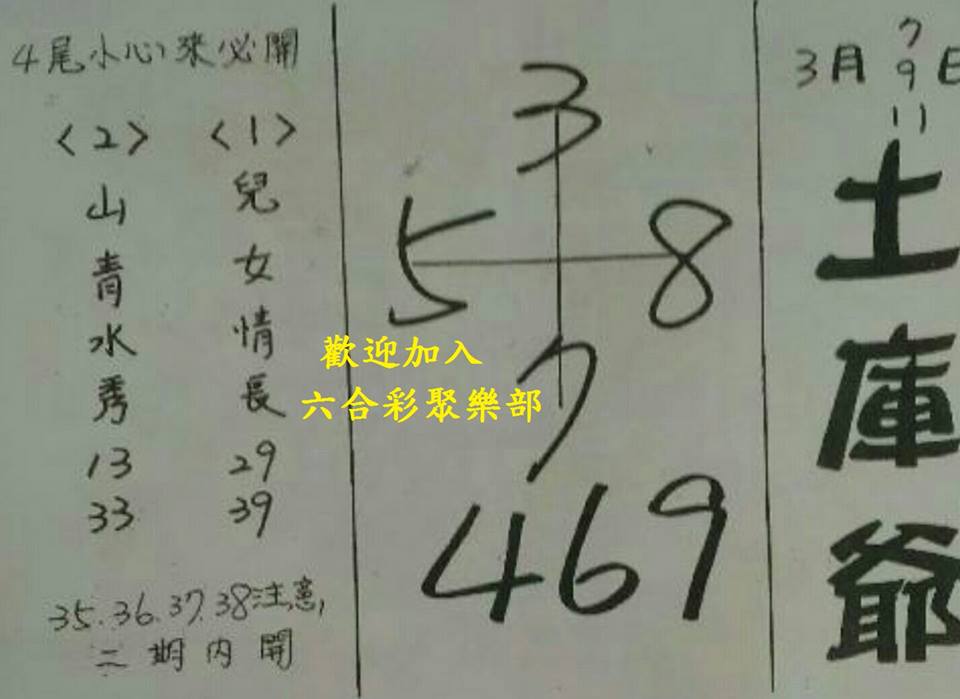 3月 7 9 11 日
土庫爺
3
5 8
7
469
歡迎加入
六合彩聚樂部
4尾小心來必開
<1>
兒女情長
29
39
<2>
山青水秀
13
33
35.36.37.38注意,
二期內開